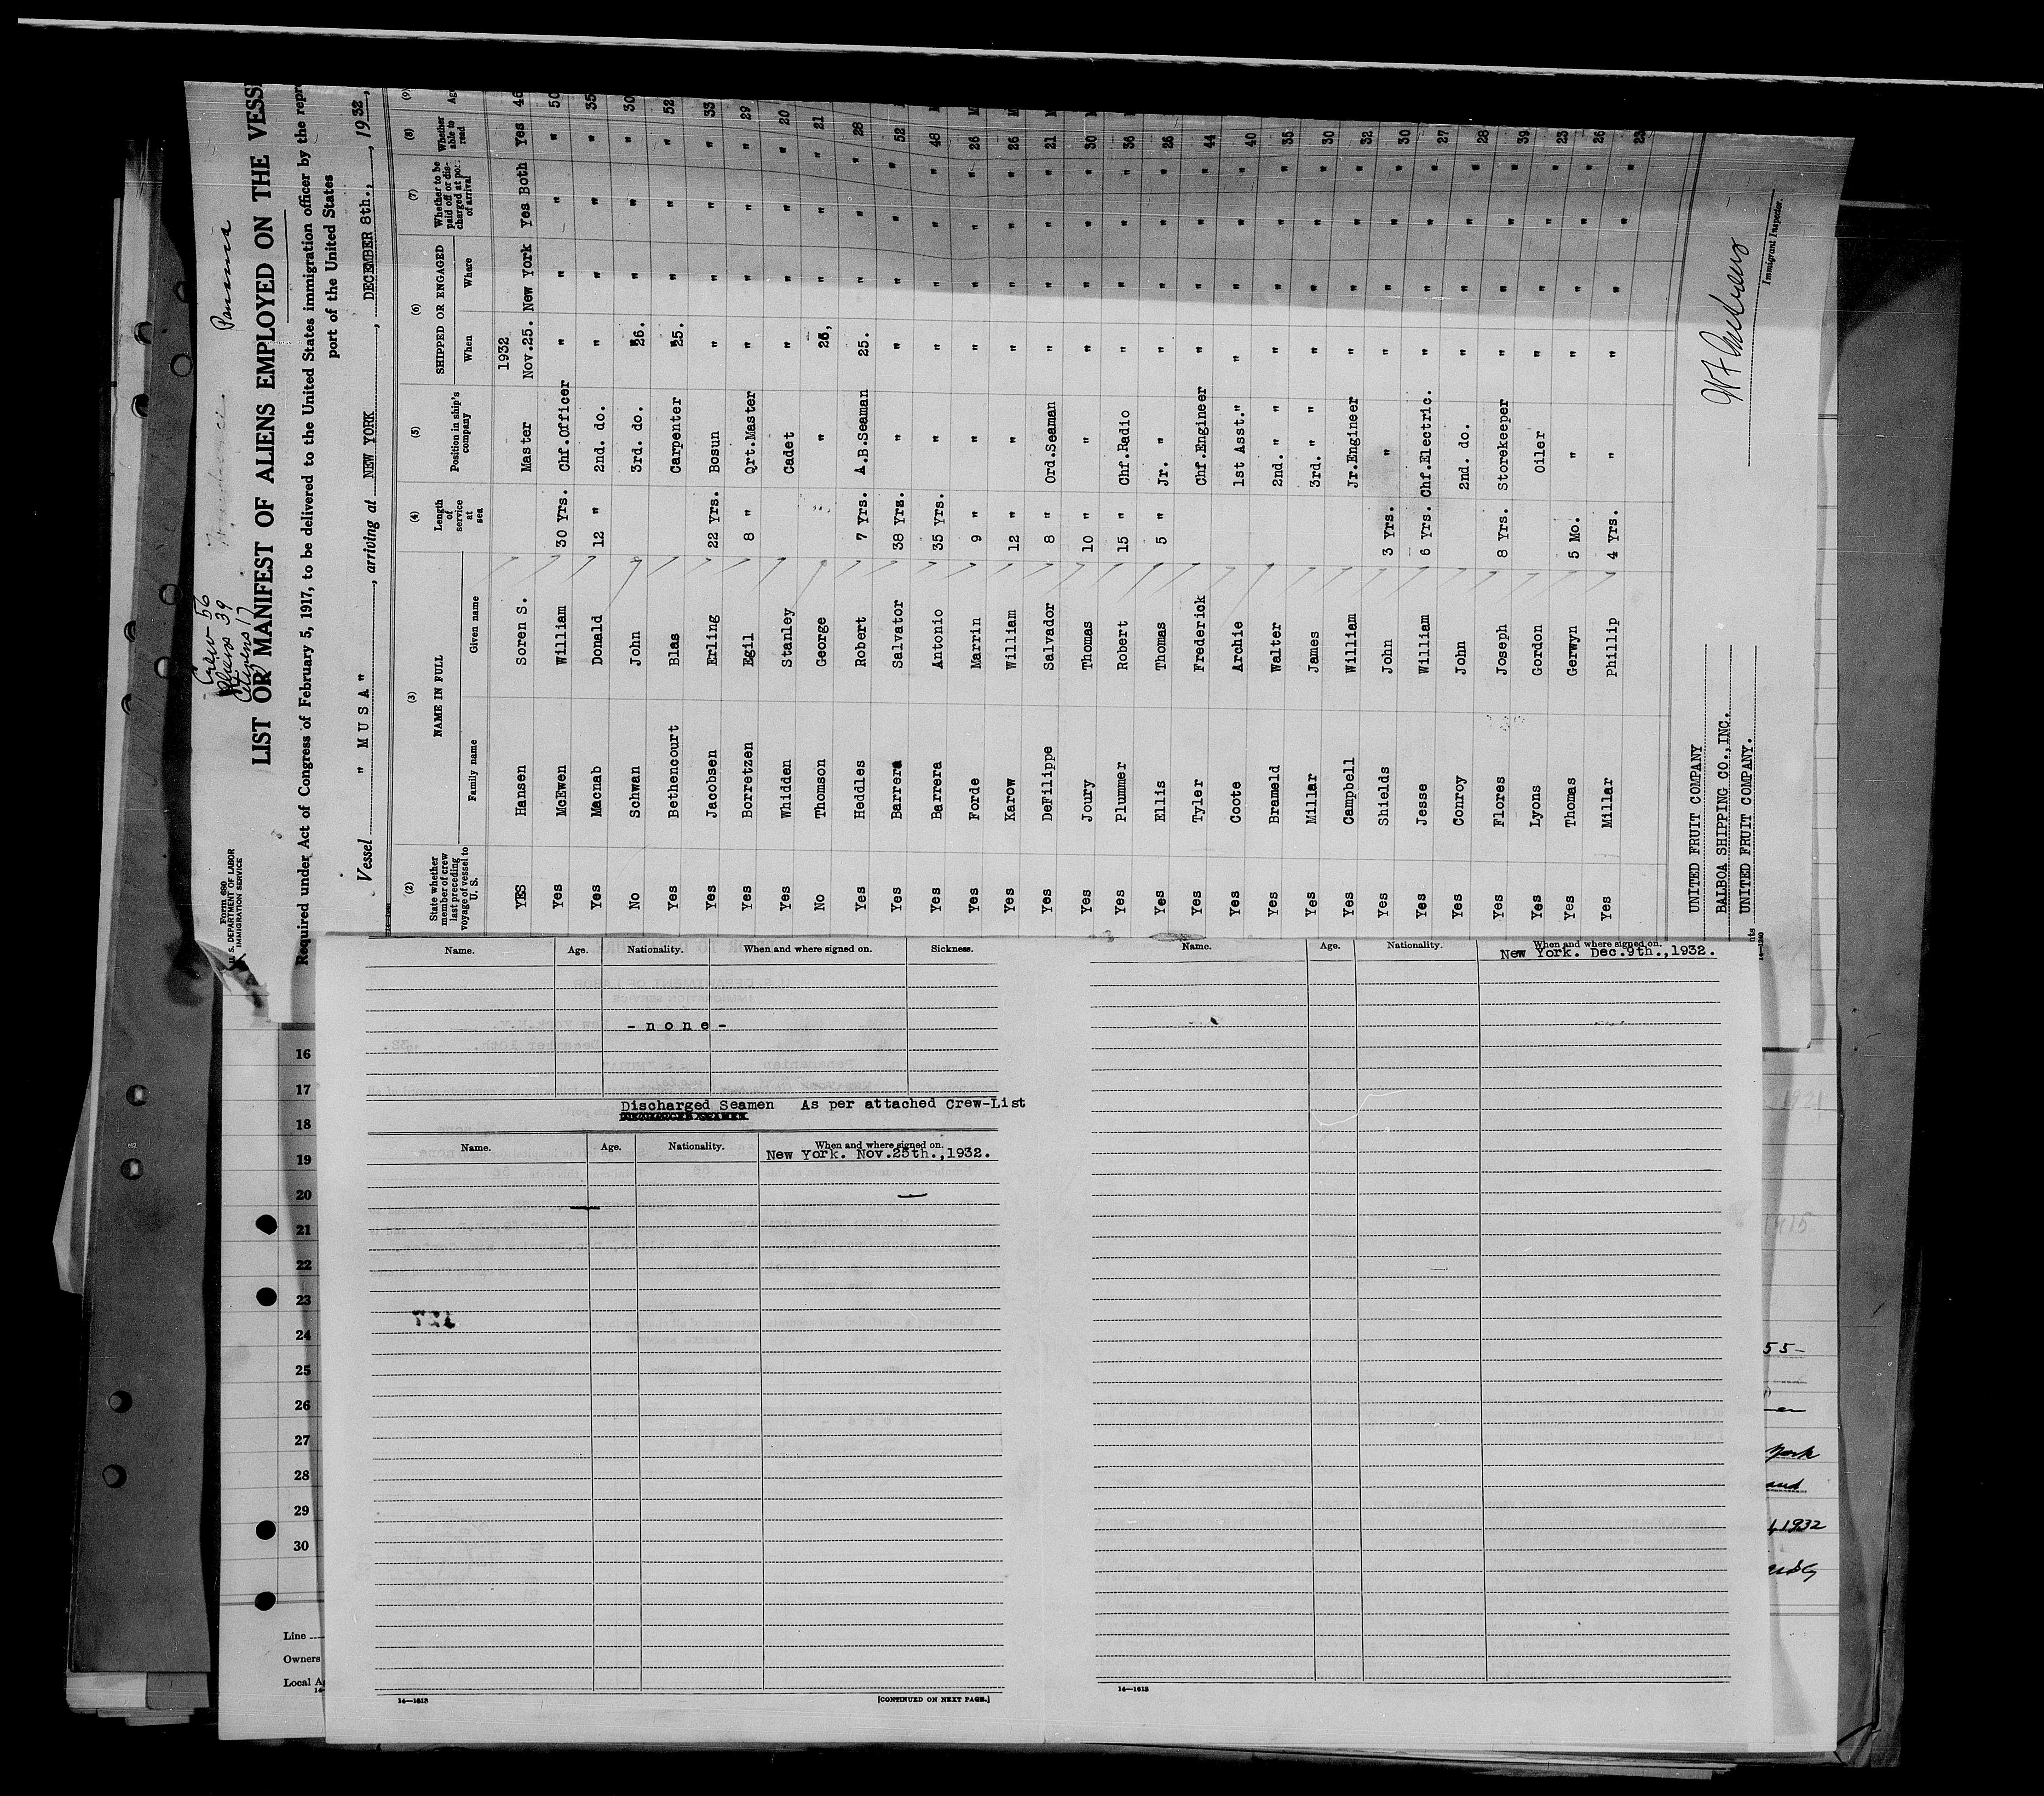 Crew 56
Aliens 39
Citizens 17
Panama
Form 690
U. S. DEPARTMENT OF LABOR
IMMIGRATION SERVICE
LIST OR MANIFEST OF ALIENS EMPLOYED ON THE VESS
Required under Act of Congress of February 5, 1917, to be delivered to the United States immigration officer by the repr
port of the United States
Vessel " M U S A ", arriving at NEW YORK, DECEMBER 8th., 1932,
(2) (3) (4) (5) (6) (7) (8) (9)
State whether member of crew last preceding voyage of vessel to U. S. NAME IN FULL Family name Given name Length of service at sea Position in ship's company SHIPPED OR ENGAGED When Where Whether to be paid off or discharged at port of arrival Whether able to read Ag
1932
YES Hansen Soren S. Master Nov.25. New York Yes Both Yes 46
Yes McEwen William 30 Yrs. Chf.Officer " " " " 50
Yes Macnab Donald 12 " 2nd. do. " " " " 35
No Schwan John 3rd. do. "26. " " " 30
Yes Bethencourt Blas Carpenter "25. " " " 52
Yes Jacobsen Erling 22 Yrs. Bosun " " " " 33
Yes Borretzen Egil 8 " Qrt.Master " " " " 29
Yes Whidden Stanley Cadet " " " " 20
No Thomson George " 26, " " " 21
Yes Heddles Robert 7 Yrs. A.B.Seaman 25. " " " 28
Yes Barrera Salvator 38 Yrs. " " " " " 52
Yes Barrera Antonio 35 Yrs. " " " " " 48
Yes Forde Marrin 9 " " " " " " 26
Yes Karow William 12 " " " " " " 26
Yes DeFilippe Salvador 8 " Ord.Seaman " " " " 21
Yes Joury Thomas 10 " " " " " " 30
Yes Plummer Robert 15 " Chf.Radio " " " " 36
Yes Ellis Thomas 5 " Jr. " " " " " 26
Yes Tyler Frederick Chf.Engineer " " " " 44
Yes Coote Archie 1st Asst." " " " " 40
Yes Brameld Walter 2nd. " " " " " " 35
Yes Millar James 3rd. " " " " " " 30
Yes Campbell William Jr.Engineer " " " " 32
Yes Shields John 3 Yrs. " " " " " 30
Yes Jesse William 6 Yrs. Chf.Electric. " " " " 27
Yes Conroy John 2nd. do. " " " " 28
Yes Flores Joseph 8 Yrs. Storekeeper " " " " 39
Yes Lyons Gordon Oiler " " " " 23
Yes Thomas Gerwyn 5 Mo. " " " " " 26
Yes Millar Phillip 4 Yrs. " " " " " 23
UNITED FRUIT COMPANY
BALBOA SHIPPING CO., INC.
UNITED FRUIT COMPANY.
Immigrant Inspector.
nts
14—1240
Name. Age. Nationality. When and where signed on. Sickness.
- n o n e -
Discharged Seamen As per attached Crew-List
Name. Age. Nationality. When and where signed on.
New York. Nov.25th.,1932.
14—1613
[CONTINUED ON NEXT PAGE.]
Name. Age. Nationality. When and where signed on.
New York. Dec.9th.,1932.
14—1613
16
17
18
19
20
21
22
23
24
25
26
27
28
29
30
Line
Owners
Local A
14-
1921
1915
55-
York
and
4 1932